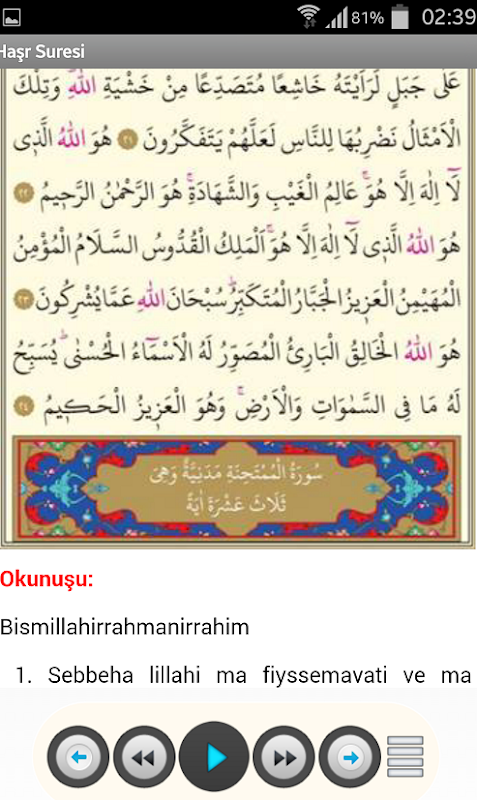 81% 02:39
Haşr Suresi
عَلٰى جَبَلٍ لَرَاَيْتَهُ خَاشِعًا مُتَصَدِّعًا مِنْ خَشْيَةِ اللّٰهِۜ وَتِلْكَ
الْاَمْثَالُ نَضْرِبُهَا لِلنَّاسِ لَعَلَّهُمْ يَتَفَكَّرُونَ ﴿٢١﴾ هُوَ اللّٰهُ الَّذ۪ي
لَٓا اِلٰهَ اِلَّا هُوَۚ عَالِمُ الْغَيْبِ وَالشَّهَادَةِۚ هُوَ الرَّحْمٰنُ الرَّح۪يمُ ﴿٢٢﴾
هُوَ اللّٰهُ الَّذ۪ي لَٓا اِلٰهَ اِلَّا هُوَۚ اَلْمَلِكُ الْقُدُّوسُ السَّلَامُ الْمُؤْمِنُ
الْمُهَيْمِنُ الْعَز۪يزُ الْجَبَّارُ الْمُتَكَبِّرُۜ سُبْحَانَ اللّٰهِ عَمَّا يُشْرِكُونَ ﴿٢٣﴾
هُوَ اللّٰهُ الْخَالِقُ الْبَارِئُ الْمُصَوِّرُ لَهُ الْاَسْمَٓاءُ الْحُسْنٰىۜ يُسَبِّحُ
لَهُ مَا فِي السَّمٰوَاتِ وَالْاَرْضِۚ وَهُوَ الْعَز۪يزُ الْحَك۪يمُ ﴿٢٤﴾
سُورَةُ الْمُمْتَحِنَةِ مَدَنِيَّةٌ وَهِيَ
ثَلَاثَ عَشْرَةَ اٰيَةً
Okunuşu:
Bismillahirrahmanirrahim
1. Sebbeha lillahi ma fiyssemavati ve ma